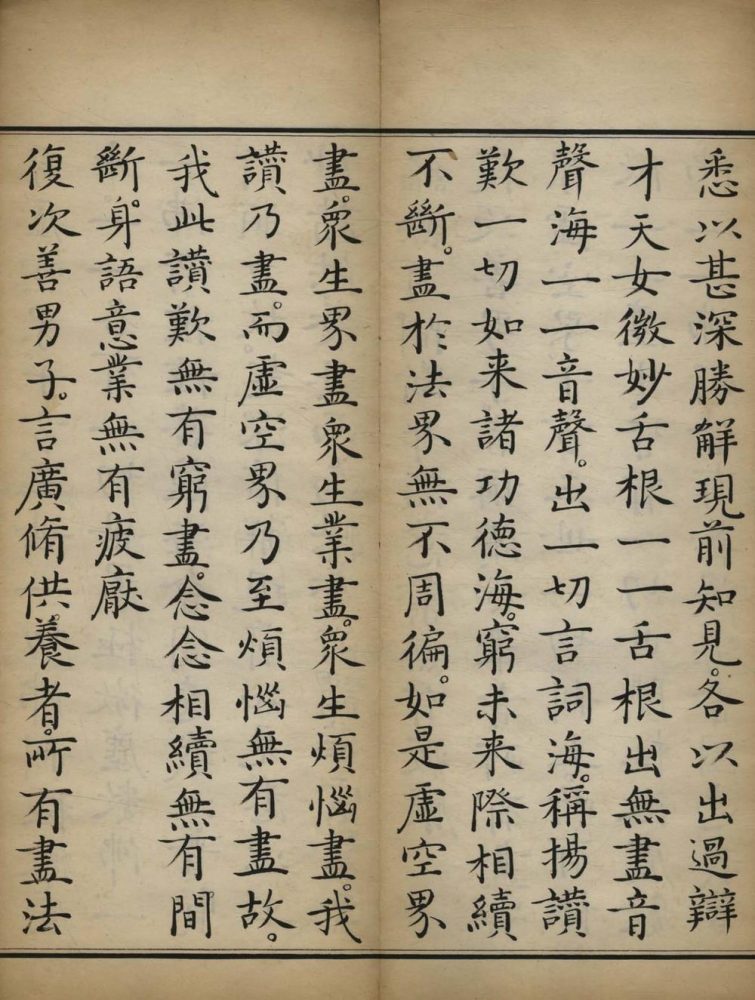 悉以甚深勝解現前知見。各以出過辯
才天女微妙舌根一一舌根出無盡音
聲海一一音聲。出一切言詞海。稱揚讚
歎一切如来諸功德海。窮未来際相續
不斷。盡於法界無不周徧。如是虛空界
盡。衆生界盡衆生業盡。衆生煩惱盡。我
讚乃盡。而虛空界乃至煩惱無有盡故。
我此讚歎無有窮盡。念念相續無有間
斷。身語意業無有疲厭
復次善男子。言廣脩供。養者。所有盡法